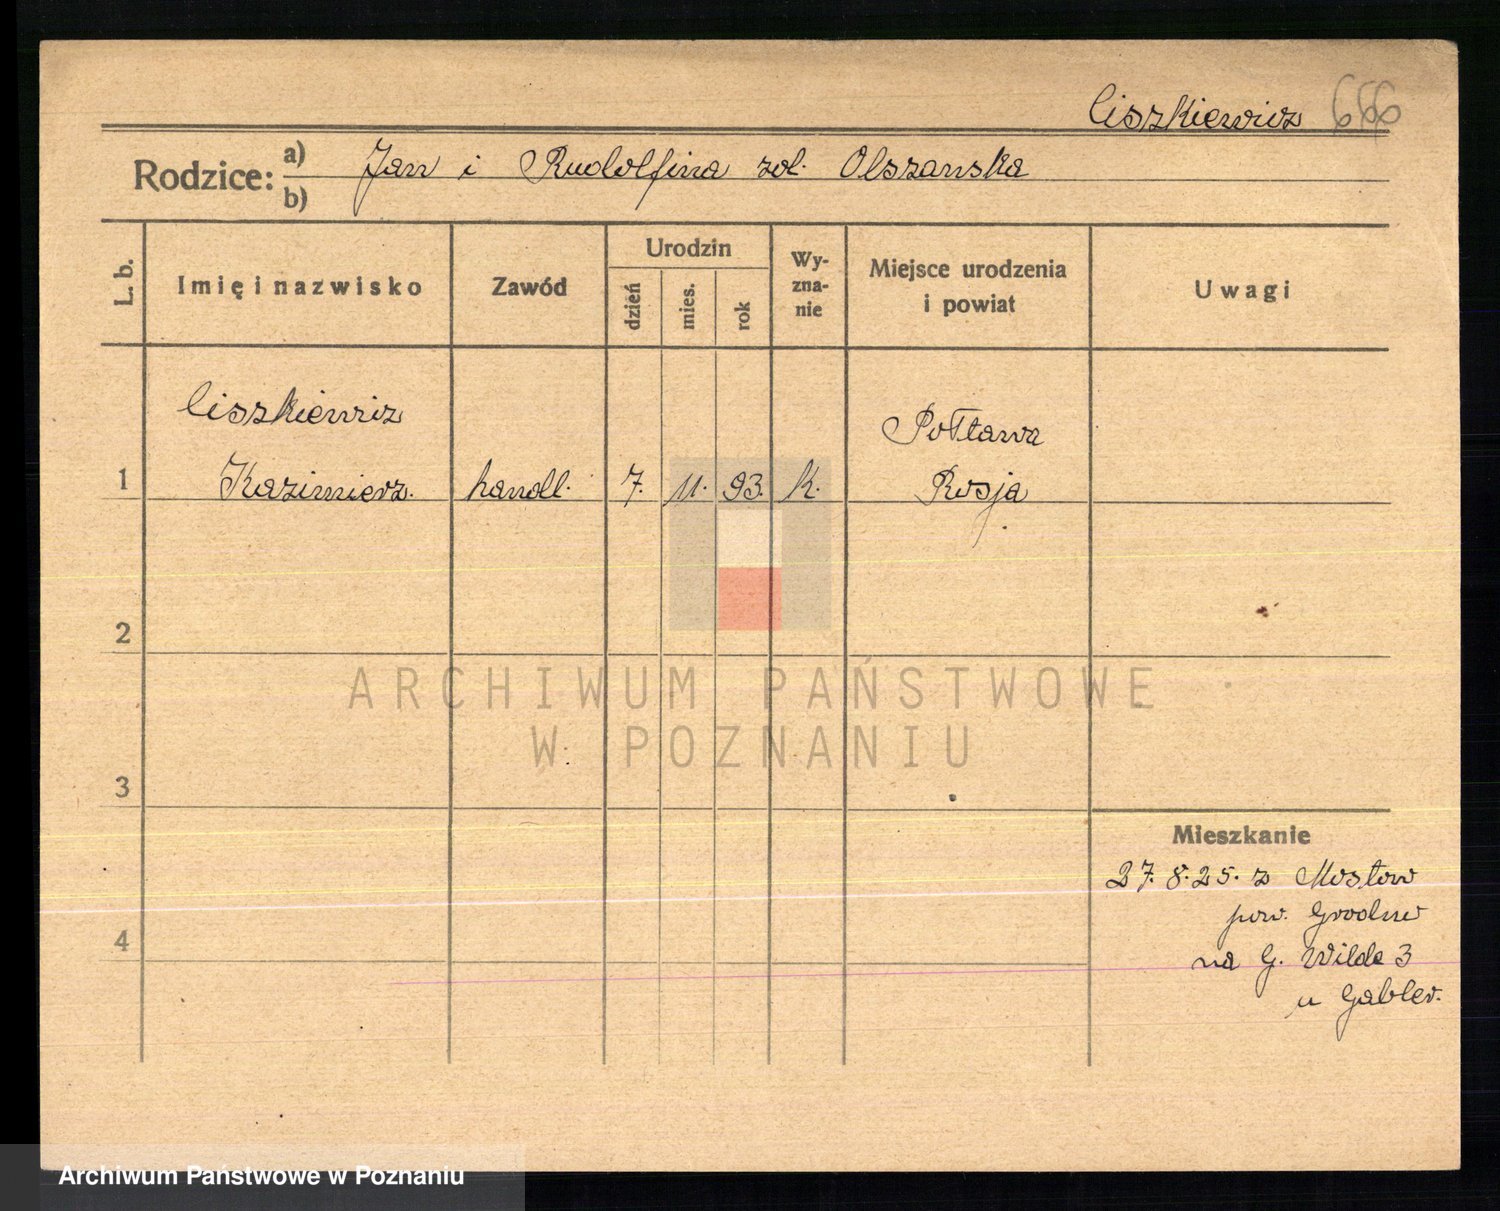 Liszkiewicz 666
Rodzice: a) Jan i Rudolfina zol. Olszańska
b)
L. b. Imię i nazwisko Zawód Urodzin dzień mies. rok Wy-zna-nie Miejsce urodzenia i powiat Uwagi
Liszkiewicz Połtawa
1 Kazimierz. handl. 7. 11. 93. k. Rosja
2
ARCHIWUM PAŃSTWOWE
W POZNANIU
3
Mieszkanie
27.8.25. z Mostów
pow. Grodno
4
na G. Wilde 3
u Gabler.
Archiwum Państwowe w Poznaniu